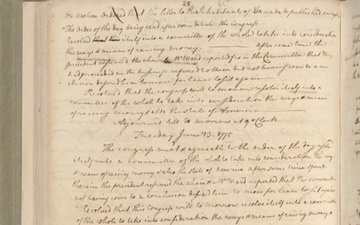 On motion Ordered that the Letter to the Inhabitants of Canada be published
The Order of the day being read after some debate the Congress
Resolved itself into a committee of the whole to take into consideration
the ways & means of raising money. After some time the
president resumed the chair & Mr Ward reported from the Committee that they
had proceeded in the business referred to them but not having come to a con-
clusion desired him to move for leave to sit again
Resolved that the congress will to morrow resolve itself into a
committee of the whole to take into consideration the ways & means
of raising money & the State of America
Adjourned till to morrow at 9 o Clock.
Tuesday June 13. 1775
The congress met & agreeable to the order of the day resolved
itself into a committee of the whole to take into consideration the ways
& means of raising money & the state of America after some time spent
therein the president resumed the chair & Mr Ward reported that the committee
not having come to a conclusion desired him to move for leave to sit again
Resolved that this Congress will to morrow resolve itself into a committee
of the whole to take into consideration the ways & means of raising money &